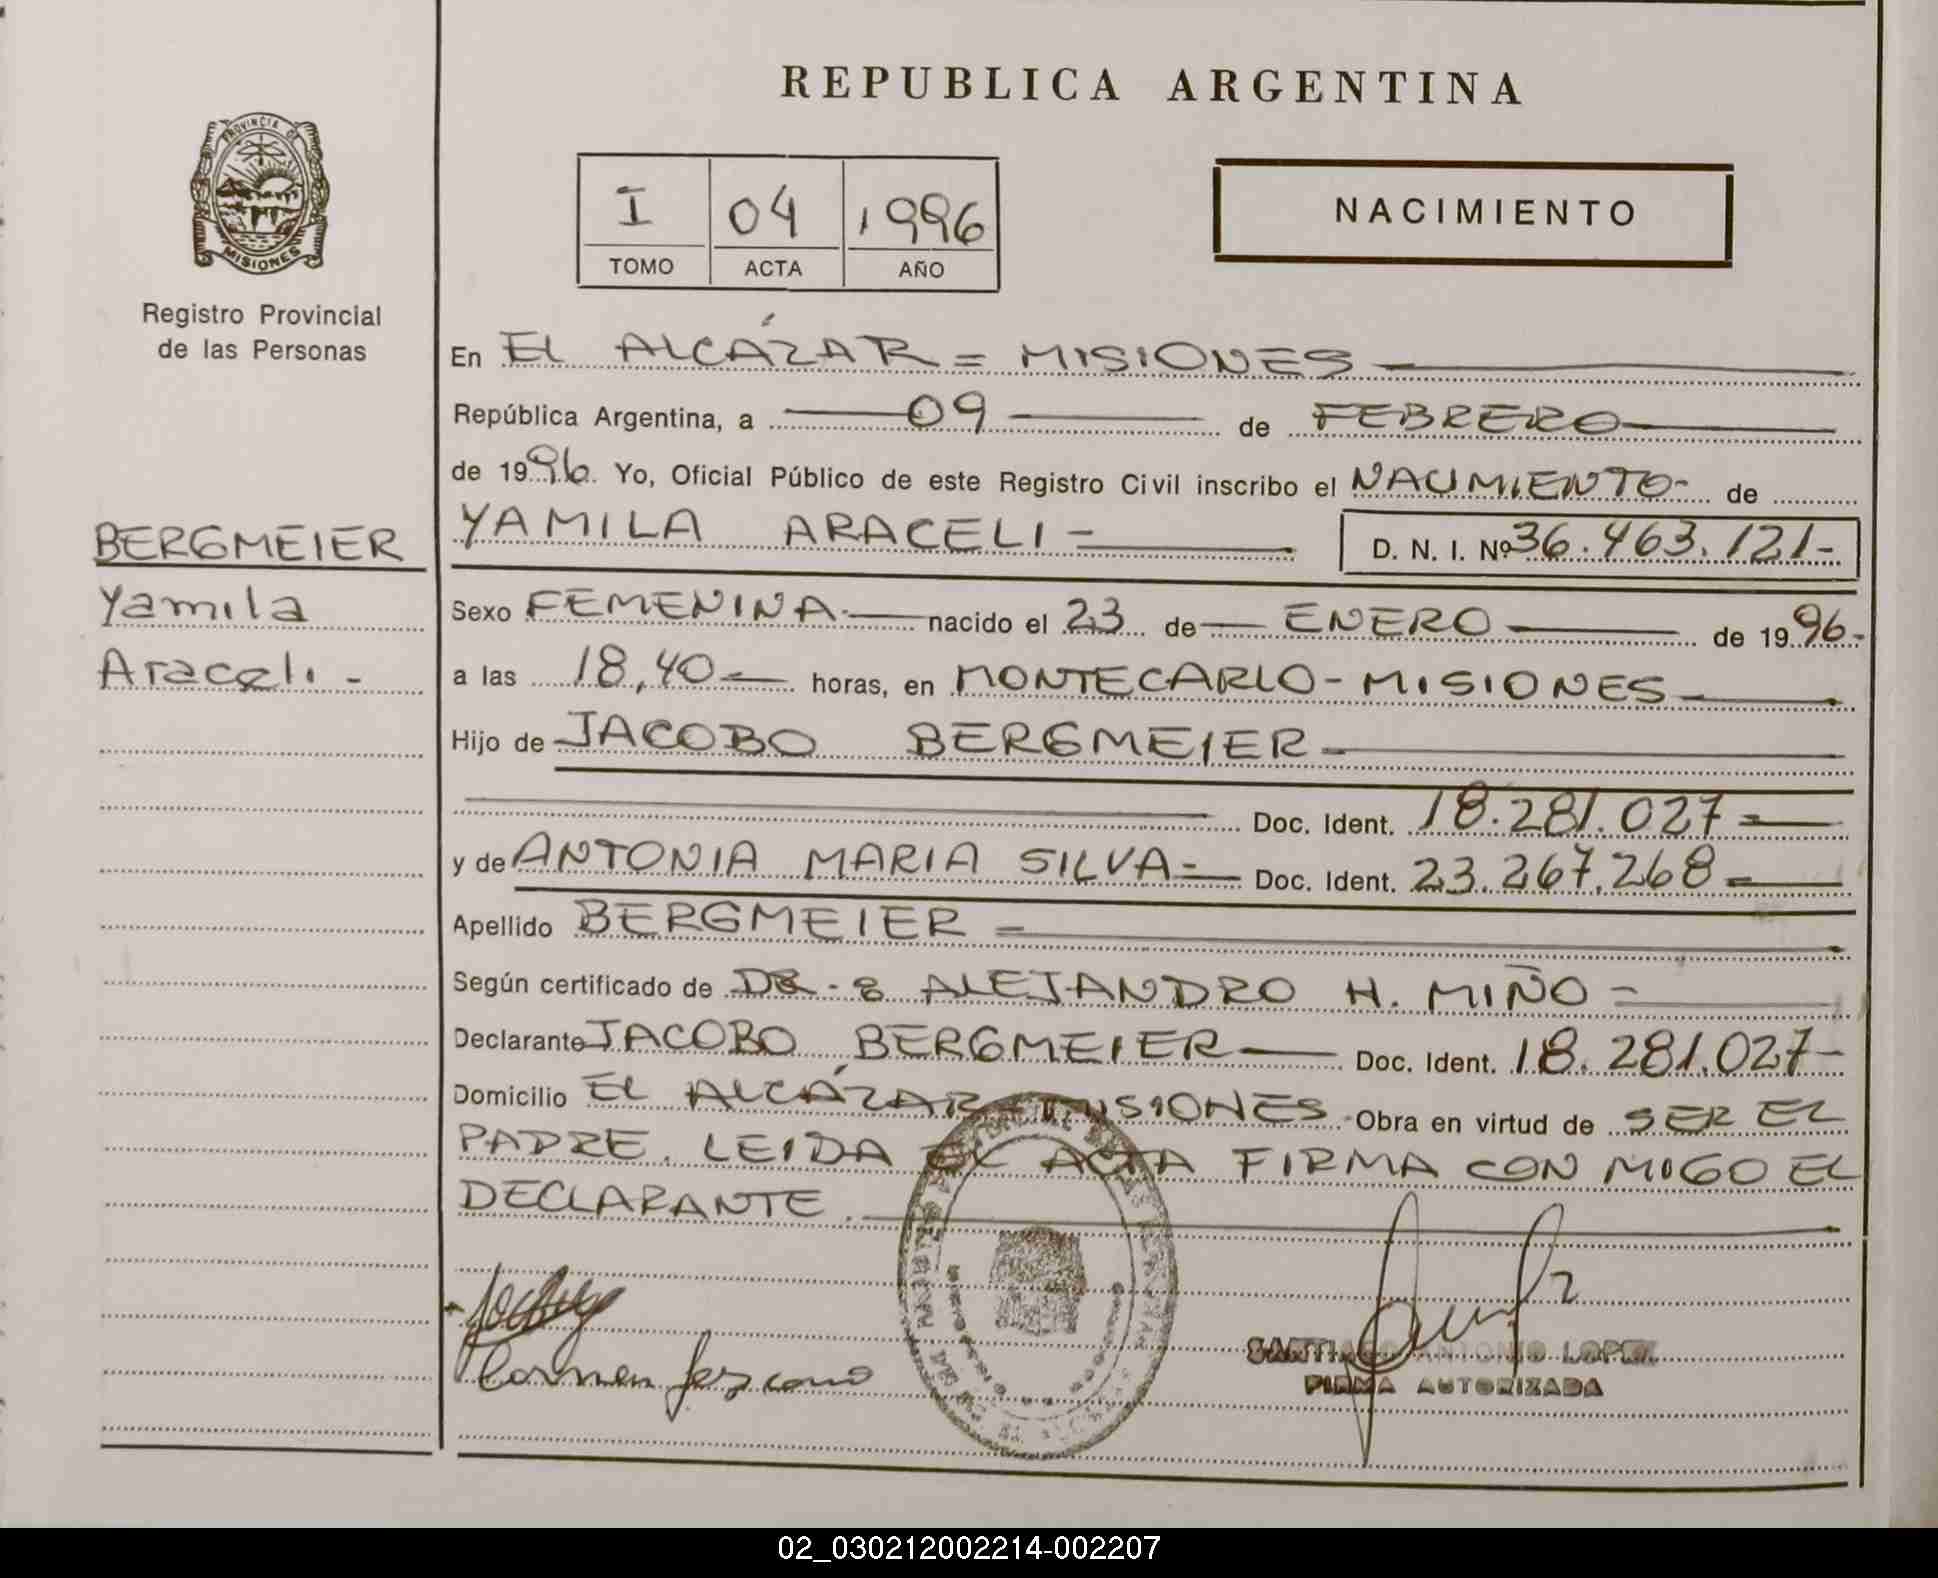 REPUBLICA ARGENTINA
PROVINCIA DE
MISIONES
I 04 1996
TOMO ACTA AÑO
NACIMIENTO
Registro Provincial
de las Personas
En EL ALCÁZAR = MISIONES
República Argentina, a 09 de FEBRERO
de 1996. Yo, Oficial Público de este Registro Civil inscribo el NACIMIENTO- de
BERGMEIER
Yamila
Araceli. -
YAMILA ARACELI - D. N. I. Nº 36.463.121-
Sexo FEMENINA. nacido el 23 de ENERO de 1996.-
a las 18,40 horas, en MONTECARLO - MISIONES
Hijo de JACOBO BERGMEIER
Doc. Ident. 18.281.027=
y de ANTONIA MARIA SILVA= Doc. Ident. 23.267.268
Apellido BERGMEIER =
Según certificado de DR. ALEJANDRO H. MIÑO -
Declarante JACOBO BERGMEIER Doc. Ident. 18.281.027-
Domicilio EL ALCÁZAR MISIONES Obra en virtud de SER EL
PADRE. LEIDA EL ACTA FIRMA CON MIGO EL
DECLARANTE.
Carmen
SANTIAGO ANTONIO LOPEZ
FIRMA AUTORIZADA
02_030212002214-002207